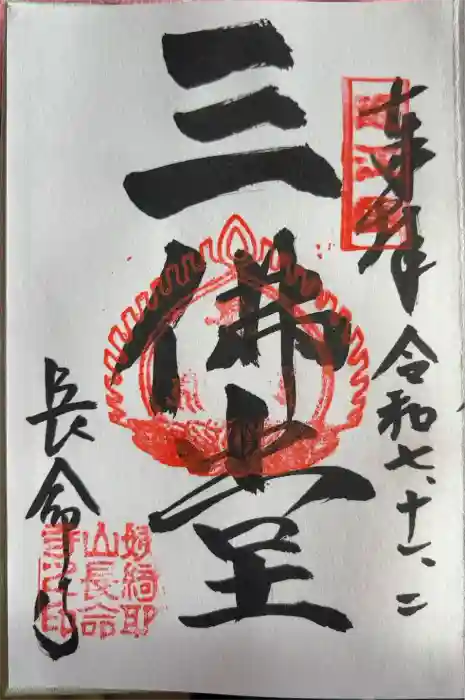 奉拝
令和七、十一、二
三佛堂
長命寺
姨綺耶
山長命
寺之印